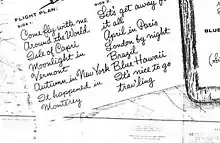 FLIGHT PLAN:
SIDE 1
Come fly with me
Around the World
Isle of Capri
Moonlight in
Vermont
Autumn in New York
It happened in
Monterey
Let's get away from
it all
April in Paris
London by night
Brazil
Blue Hawaii
It's nice to go
trav'ling
BLUE